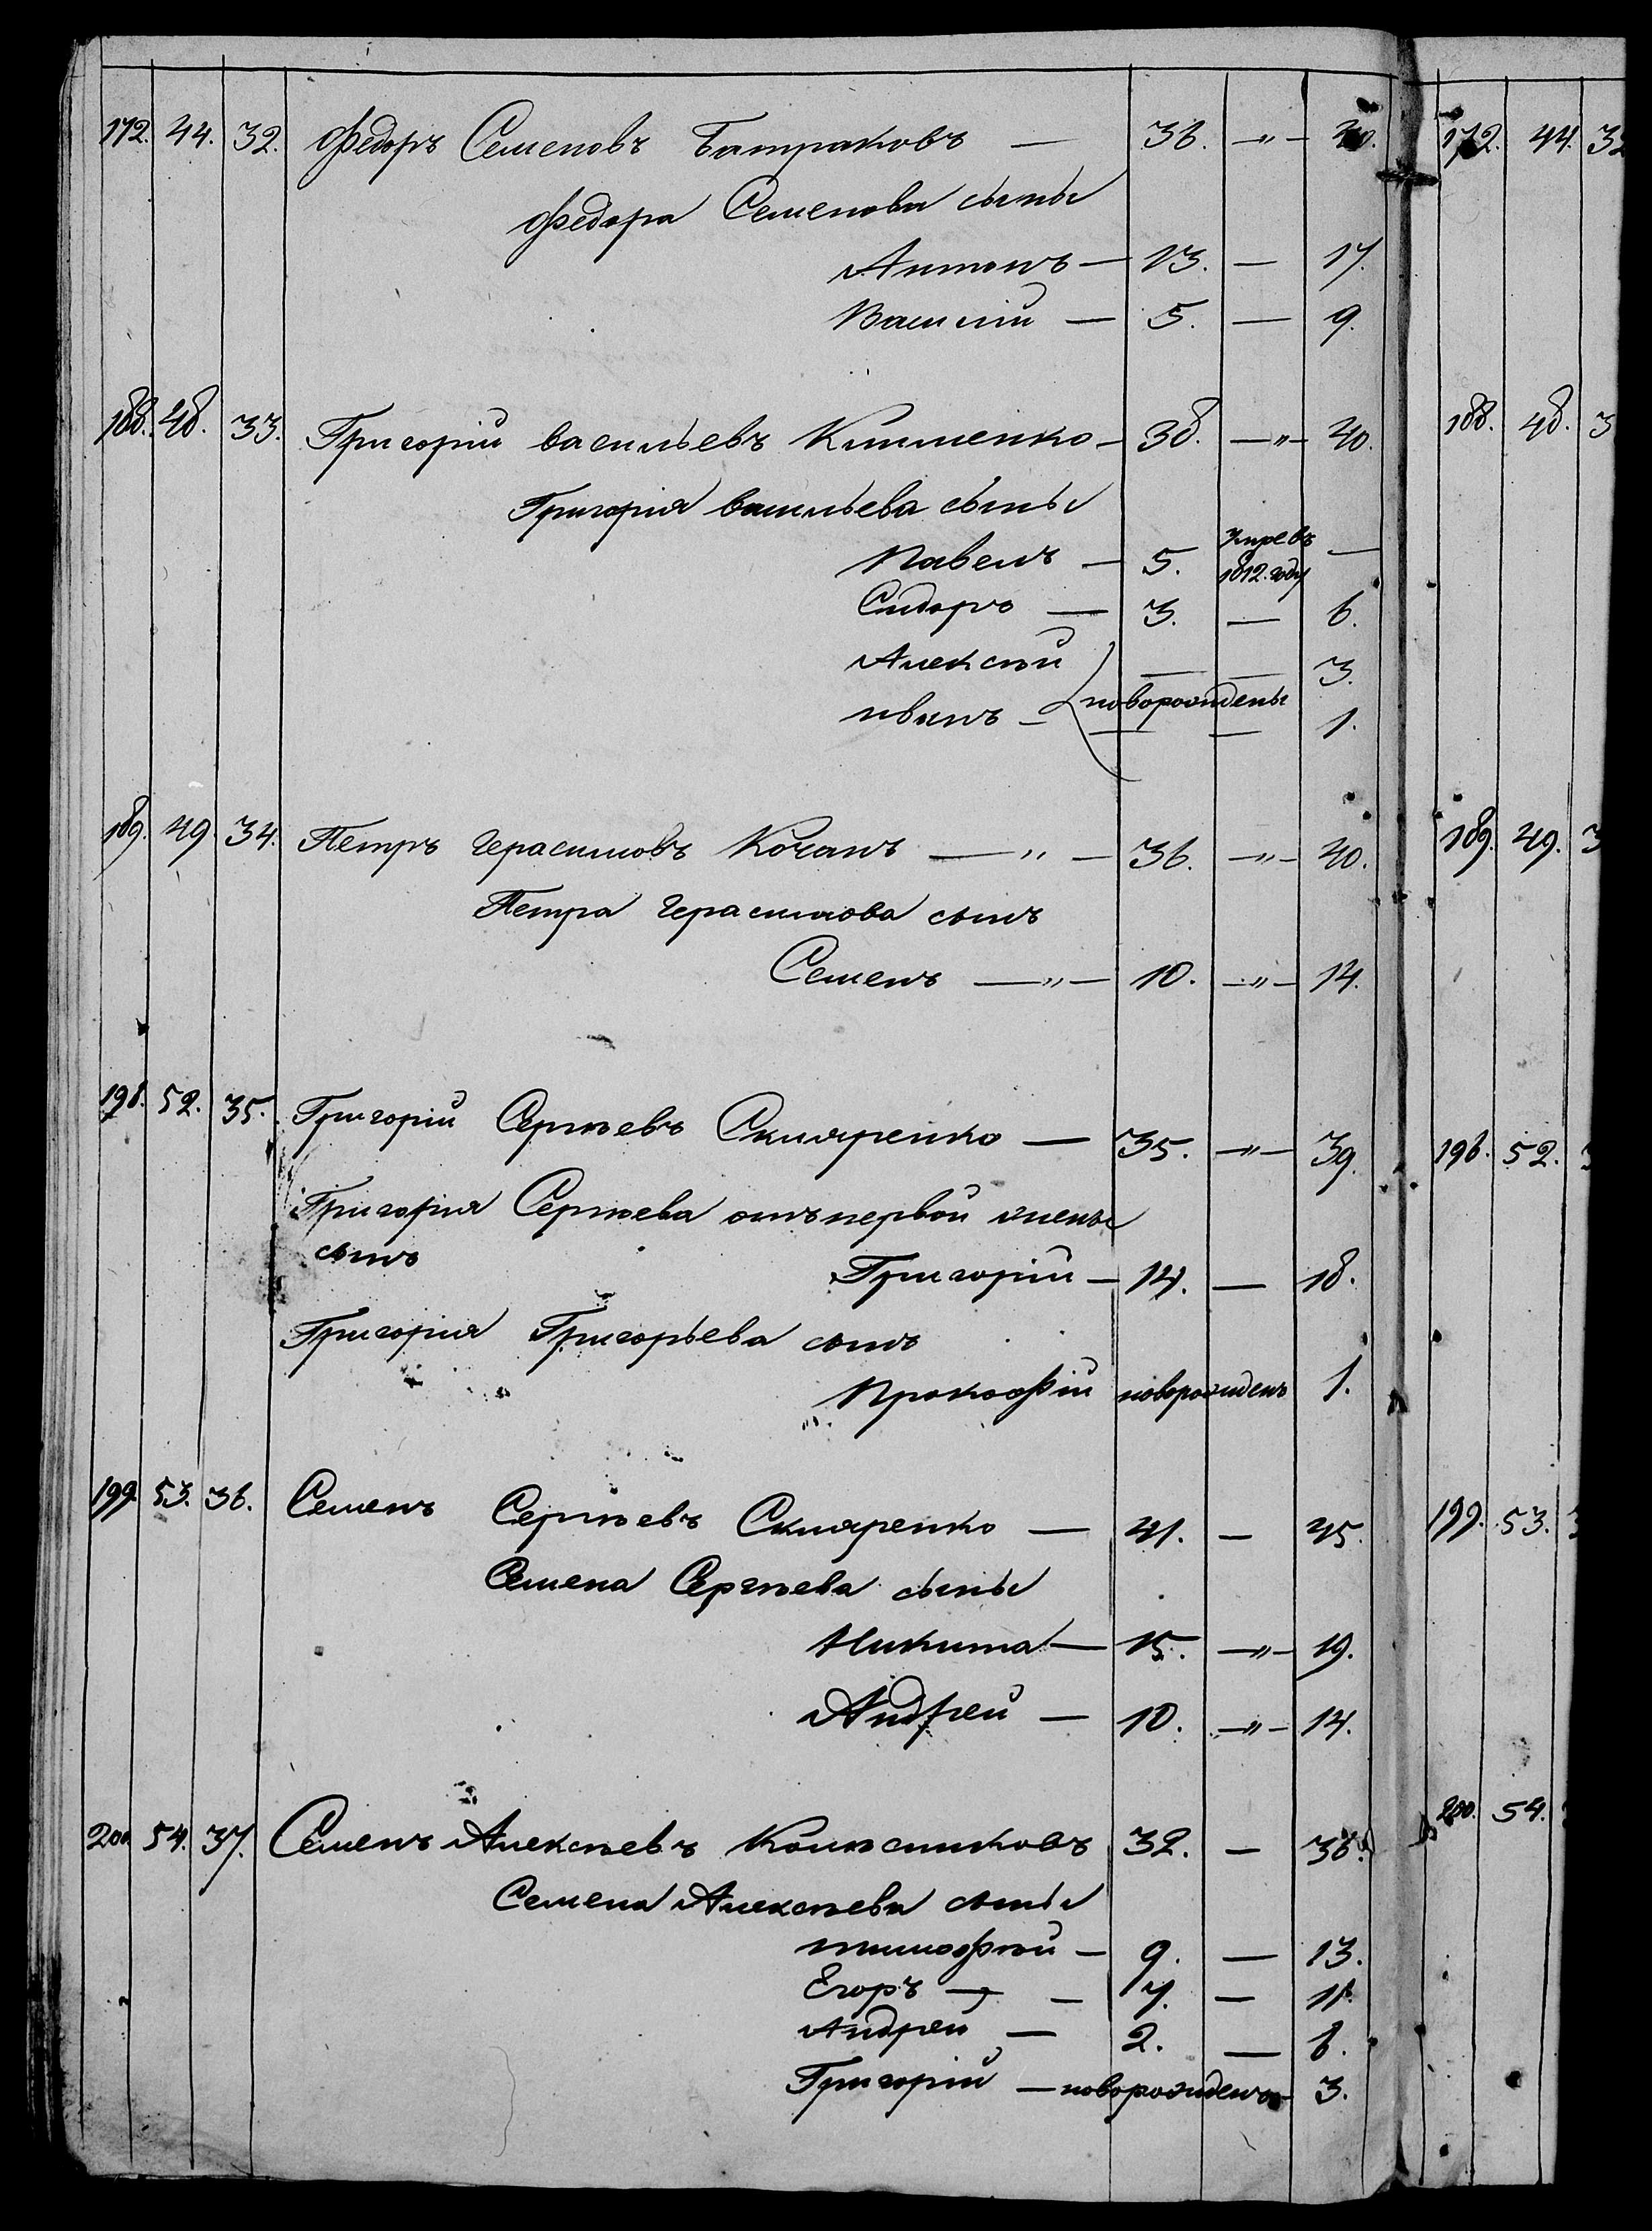 172. 44. 32. Федоръ Семеновъ Батраковъ — 36. —"— 40. 172. 44. 32
Федора Семенова сыны
Антонъ — 13. — 17.
Василій — 5. — 9.
188. 48. 33. Григорій васильевъ Клименко — 38. —"— 40. 188. 48. 3
Григорія васильева сыны
Павелъ — 5. умре въ 1812. году —
Сидоръ — 3. — 6.
Алексѣй — — 3.
новорождены
иванъ — — — 1.
189. 49. 34. Петръ Герасимовъ Кочанъ —"— 36. —"— 40. 189. 49. 3
Петра Герасимова сынъ
Семенъ —"— 10. —"— 14.
198. 52. 35. Григорій Сергѣевъ Скляренко — 35. —"— 39. 198. 52. 3
Григорія Сергѣева отъ первой жены
сынъ
Григорій — 14. — 18.
Григорія Григорьева сынъ
Прокофій новорожденъ 1.
199. 53. 36. Семенъ Сергѣевъ Скляренко — 41. — 45. 199. 53. 3
Семена Сергѣева сыны
Никита — 15. —"— 19.
Андрей — 10. —"— 14.
200. 54. 37. Семенъ Алексѣевъ Колюсниковъ 32. — 36. 200. 54.
Семена Алексѣева сыны
тимофѣй — 9. — 13.
Егоръ — 7. — 11.
Андрей — 2. — 6.
Григорій — новорожденъ — 3.